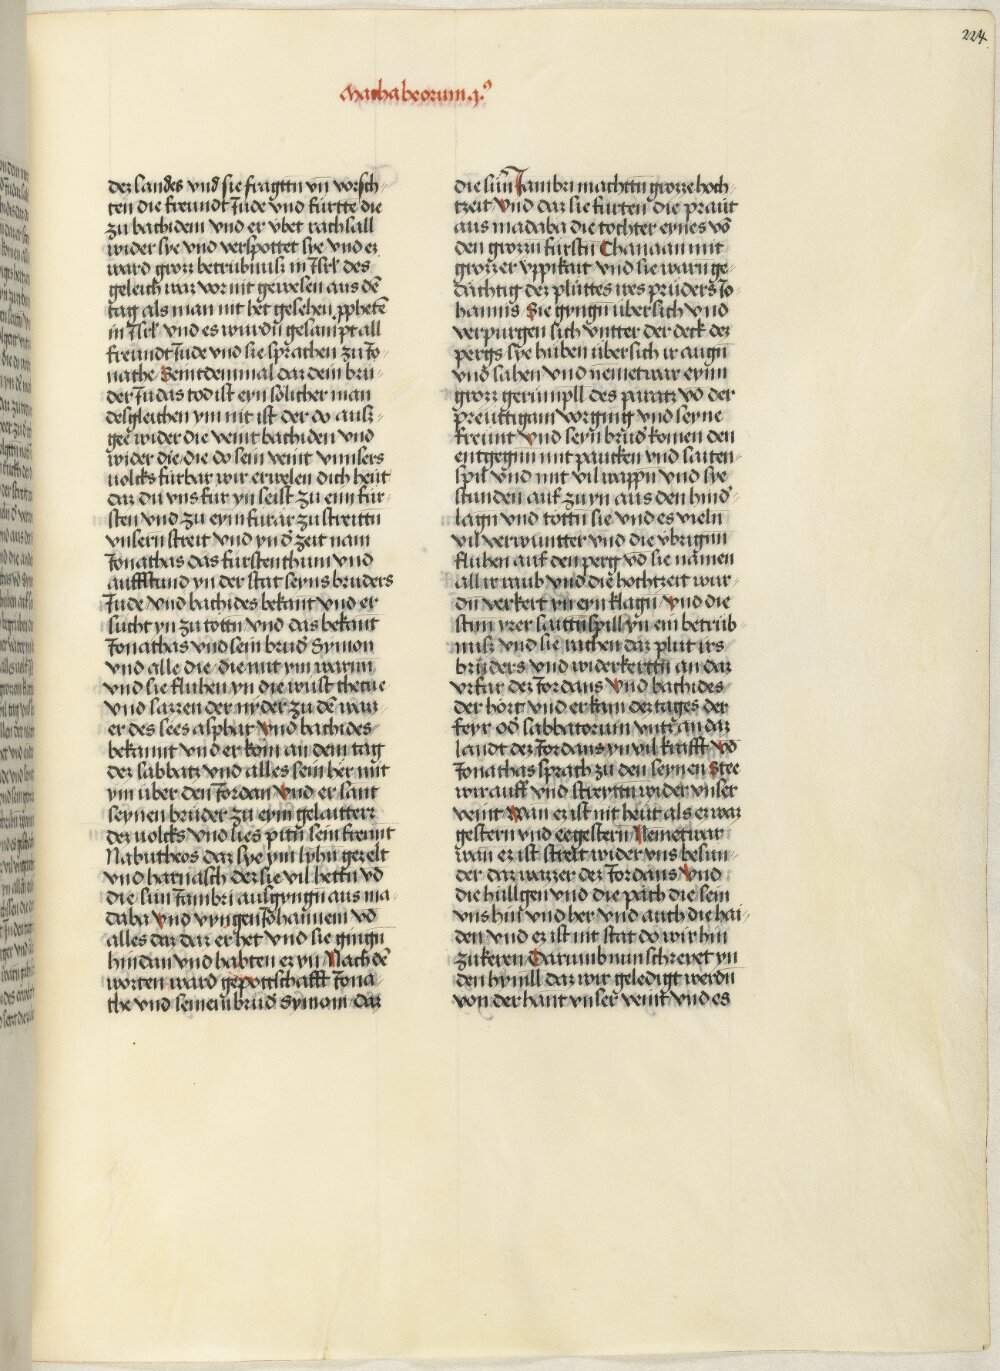 224
Machabeorum .j.o
dez landes vnd sie fragttn vn̄ vorsch-
ten die freundt Jude vnd furtte die
zu bachidem vnd er vbet rachsall
wider sye vnd verspottet sye vnd ez
ward grozz betrubnusz in Isrl̄ des
geleich waz vor nit gewesen aus dē
tag als man nit het gesehen ꝓphetē
in Isrl̄ vnd es wurdn̄ gesampt all
freundt Jude vnd sie sprachen zu Jo-
nathe Seintdemmal daz dein bru-
der Judas tod ist eyn solicher man
desgleichen ym nit ist der do ausz-
gee wider die veint bachiden vnd
wider die die do sein veint vnnsers
uolcks furbar wir erwelen dich heut
daz du vns fur yn seist zu eim fur-
sten vnd zu eym furar zu streittn
vnsern streit vnd yn d̄ zeit nam
Jonathas das furstenthum vnd
auffstund yn der stat seyns bruders
Jude vnd bachides bekant vnd er
sucht yn zu tottn vnd das bekant
Jonathas vnd sein brud̄ Symon
vnd alle die die mit ym warnn
vnd sie fluhen yn die wust thecue
vnd sazzen der nyder zu dē waz-
er des sees asphar Vnd bachides
bekannt vnd er kom an dem tag
dez sabbatz vnd alles sein her mit
ym uber den Jordan Vnd er sant
seynen bruder zu eym gelaitterz
dez uolcks vnd lies pitn̄ sein freunt
Nabutheos daz sye ym lyhn̄ gezelt
vnd harnasch der sie vil hettn vō
die sun Jambri ausgyngn aus ma-
daba Vnd vyngen Johannem vō
alles daz daz er het vnd sie gingn
hindan vnd habten ez yn Nach dē
worten ward gepottschafft Jona-
the vnd seinem brud̄ Symoni daz
die sun̄ Jambri machttn grozze hoch-
tzeit Vnd daz sie furten die praut
aus madaba die tochter eynes vō
den grozzn furstn̄ Chanaan mit
grozzer vppikait vnd sie warn ge-
dachtig dez plutes irs pruders Jo-
hannis Sie gyngn ubersich vnd
verpurgen sich vntter der deck dez
pergs sye huben ubersich ir augn
vnd̄ sahen vnd nemet war eynn
grozz gerumpll des paratz vō der
preuttigam vorging vnd seyne
freunt Vnd seyn brud̄ komen den
entgegnn mit paucken vnd saiten-
spil vnd mit vil wappn vnd sye
stunden auf zu yn aus den hind̄-
lagn vnd tottn sie vnd es vieln
vil verwuntter vnd die vbrignn
fluhen auf den perg vō sie namen
all ir raub vnd die hochtzeit wur-
dn̄ verkert yn eyn klagn Vnd die
stim yrer saittnspill yn ein betrub-
nusz vnd sie rachen daz plut irs
bruders vnd widerkerttn an daz
vrfar dez Jordans Vnd bachides
der hort vnd er kam dez tages der
feyr od̄ sabbatorum vntz an daz
landt dez Jordans yn vil krafft Vō
Jonathas sprach zu den seynen Stee
wir auff vnd streyttn wider vnser
veint Wan ez ist nit heut als ez waz
gestern vnd eegestern Nemet war
wan ez ist streit wider vns besun-
der daz wazzer dez Jordans Vnd
die hullgen vnd die pach die sein
vns hin vnd her vnd auch die hai-
den vnd ez ist nit stat do wir hin
zukeren Darumb nun schreyet yn
den hymll daz wir geledigt werdn
von der hant vnser veint vnd es